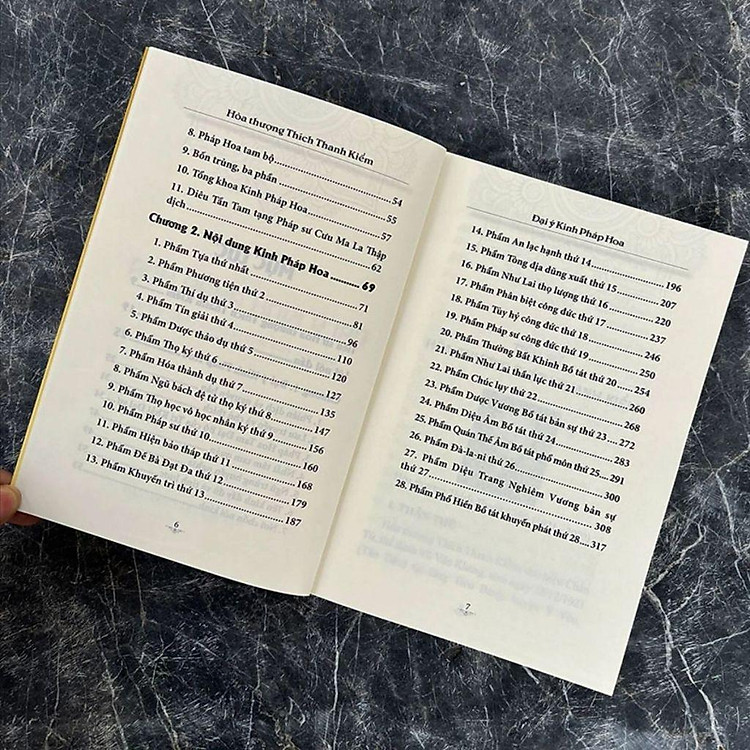 Hòa thượng Thích Thanh Kiểm
8. Pháp Hoa tam bộ..........54
9. Bốn trùng, ba phần..........55
10. Tổng khoa Kinh Pháp Hoa..........57
11. Diêu Tần Tam tạng Pháp sư Cưu Ma La Thập
dịch..........62
Chương 2. Nội dung Kinh Pháp Hoa..........69
1. Phẩm Tựa thứ nhất..........71
2. Phẩm Phương tiện thứ 2..........81
3. Phẩm Thí dụ thứ 3..........96
4. Phẩm Tín giải thứ 4..........110
5. Phẩm Dược thảo dụ thứ 5..........120
6. Phẩm Thọ ký thứ 6..........127
7. Phẩm Hóa thành dụ thứ 7..........135
8. Phẩm Ngũ bách đệ tử thọ ký thứ 8..........147
9. Phẩm Thọ học vô học nhân ký thứ 9..........156
10. Phẩm Pháp sư thứ 10..........160
11. Phẩm Hiện bảo tháp thứ 11..........168
12. Phẩm Đề Bà Đạt Đa thứ 12..........179
13. Phẩm Khuyến trì thứ 13..........187
6
Đại ý Kinh Pháp Hoa
14. Phẩm An lạc hạnh thứ 14..........196
15. Phẩm Tòng địa dũng xuất thứ 15..........207
16. Phẩm Như Lai thọ lượng thứ 16..........220
17. Phẩm Phân biệt công đức thứ 17..........237
18. Phẩm Tùy hỷ công đức thứ 18..........246
19. Phẩm Pháp sư công đức thứ 19..........250
20. Phẩm Thường Bất Khinh Bồ tát thứ 20..........254
21. Phẩm Như Lai thần lực thứ 21..........260
22. Phẩm Chúc lụy thứ 22..........268
23. Phẩm Dược Vương Bồ tát bản sự thứ 23..........272
24. Phẩm Diệu Âm Bồ tát thứ 24..........283
25. Phẩm Quán Thế Âm Bồ tát phổ môn thứ 25..........291
26. Phẩm Đà-la-ni thứ 26..........300
27. Phẩm Diệu Trang Nghiêm Vương bản sự
thứ 27..........308
28. Phẩm Phổ Hiền Bồ tát khuyến phát thứ 28..........317
7